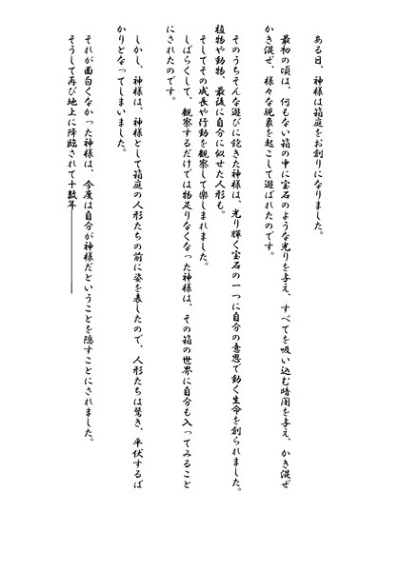 ある日、神様は箱庭をお創りになりました。
最初の頃は、何もない箱の中に宝石のような光りを与え、すべてを吸い込む暗闇を与え、かき混ぜ
かき混ぜ、様々な現象を起こして遊ばれたのです。
そのうちそんな遊びに飽きた神様は、光り輝く宝石の一つに自分の意思で動く生命を創られました。
植物や動物、最後に自分に似せた人形も。
そしてその成長や行動を観察して楽しまれました。
しばらくして、観察するだけでは物足りなくなった神様は、その箱の世界に自分も入ってみること
にされたのです。
しかし、神様は、神様として箱庭の人形たちの前に姿を表したので、人形たちは驚き、平伏するば
かりとなってしまいました。
それが面白くなかった神様は、今度は自分が神様だということを隠すことにされました。
そうして再び地上に降臨されて十数年――――――